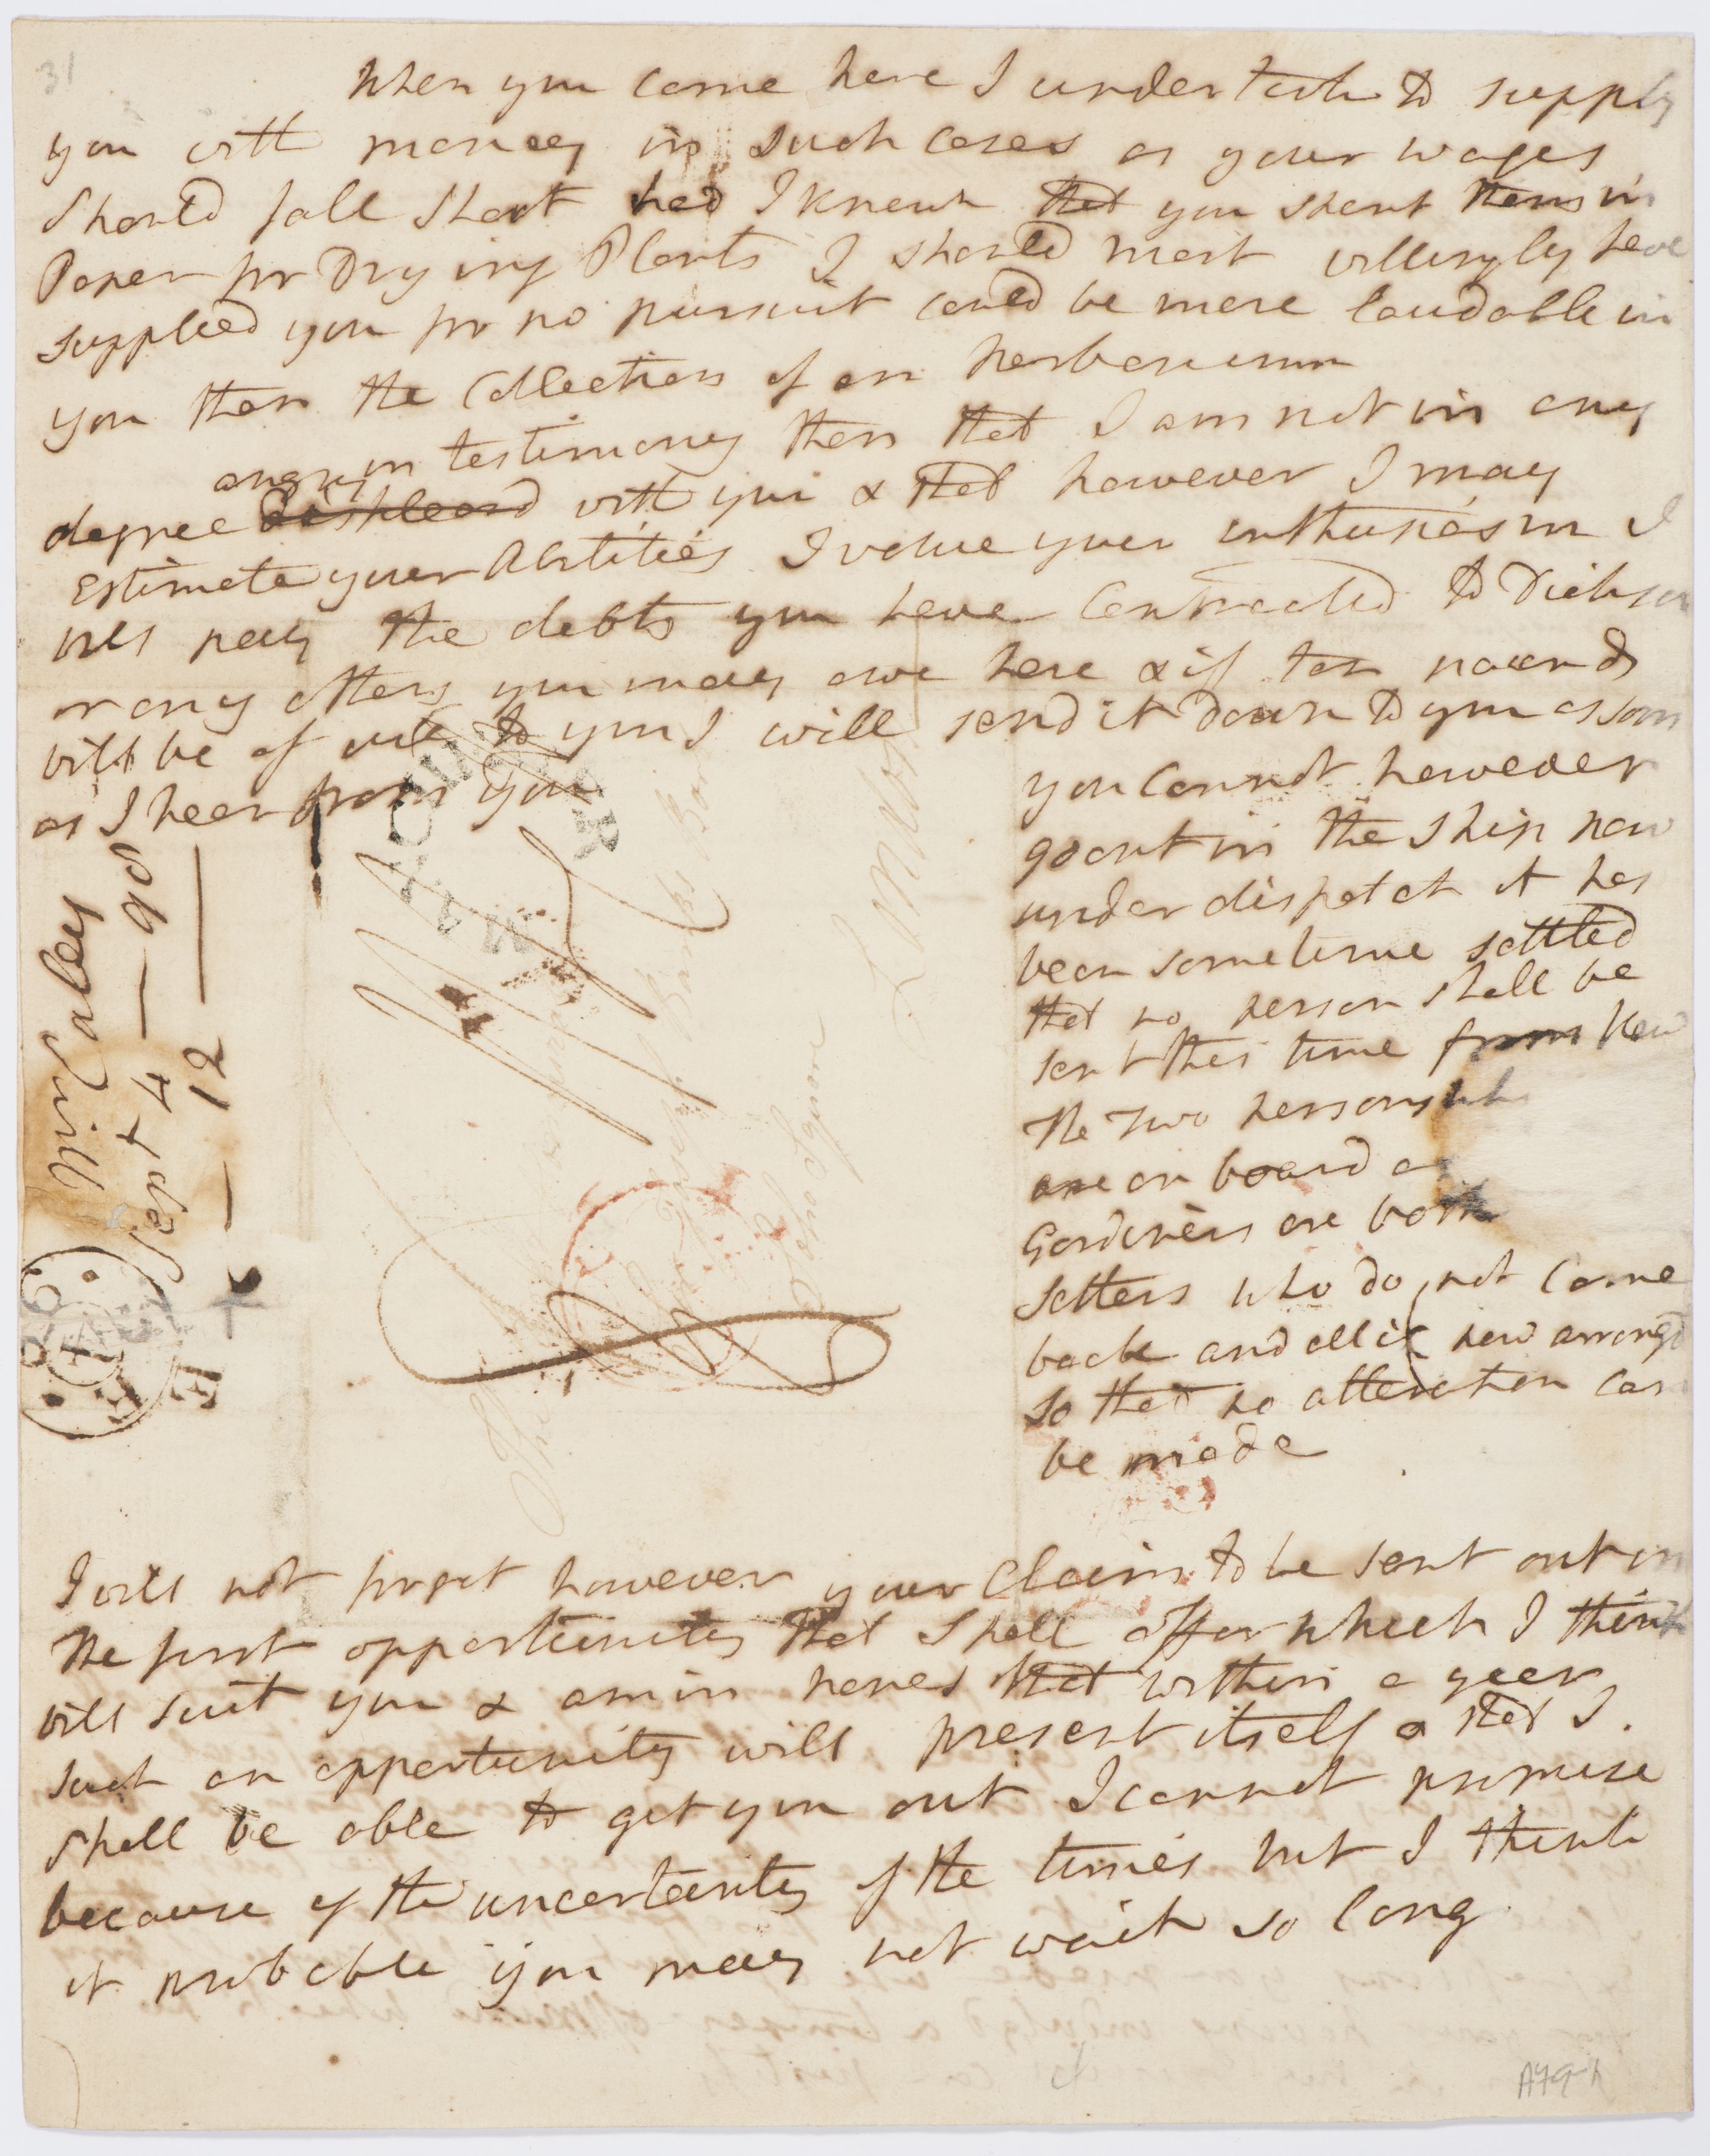 31
When you Came here I undertook to supply
you with money in such Cases as your wages
should fall short had I knewn that you spent them in
Paper for Drying Plants I should most willingly have
supplied you for no pursuit could be more laudable in
you than the Collection of an herbarium
in testimony then that I am not in any
angry
degree displeasd with you & that however I may
Estimate your Abilities I value your enthusiasm I
will pay the debts you have Contracted to Dickson
or any others you may owe here & if ten pounds
will be of use to you I will send it down to you as soon
as I hear from you
you Cannot however
go out in the ship now
under dispatch it has
been sometime settled
that no person shall be
sent this time from Kew
The Two persons who
are on board as
Gardiners are both
settlers who do not Come
back and all is now arrangd
so that no alteration can
be made
I will not forget however your Claim to be sent out in
the first opportunity that shall offer which I think
will suit you & am in hopes that within a year
such an opportunity will present itself & that I
shall be able to get you out I cannot promise
because of the uncertainty of the times but I think
it probable you may not wait so long
Mr Caley
Sept 4 — 98
12 —
London
Soho Square
A79-1